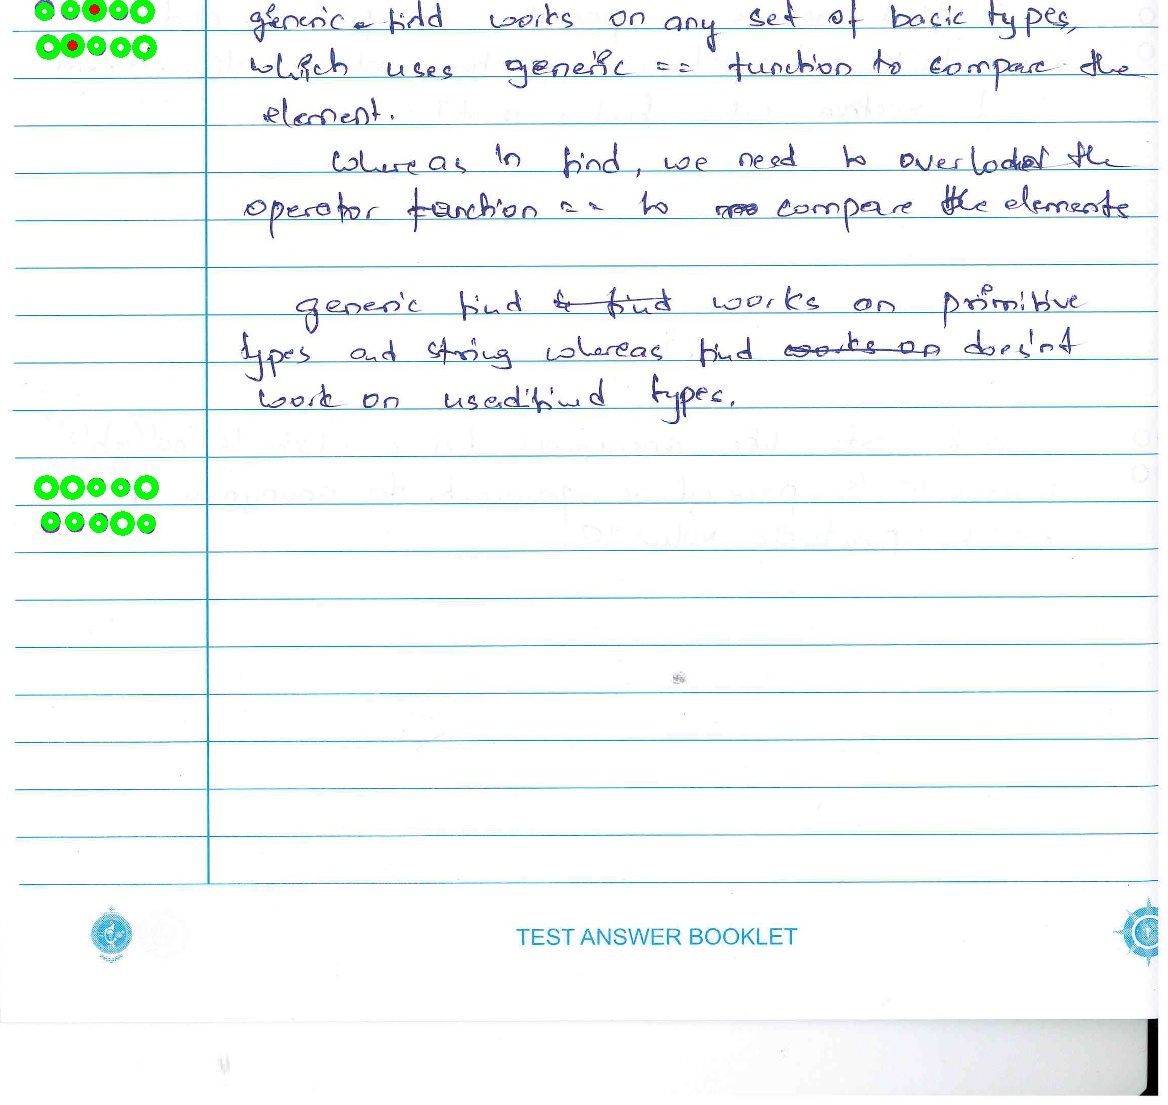 generic - find works on any set of basic types,
which uses generic == function to compare the
element.
whereas in find, we need to overload the
operator function == to compare the elements
generic find works on primitive
types and string whereas find does'nt
work on types.
TEST ANSWER BOOKLET